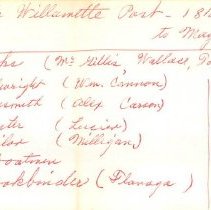 Willamette Post - 181
to May
ks (Mc Gillis Wallace, Po
wright (Wm. Cannon)
smith (Alex Carson)
ter (Lessier)
ilor (Milligan)
boatmen
ookbinder (Flanaga)